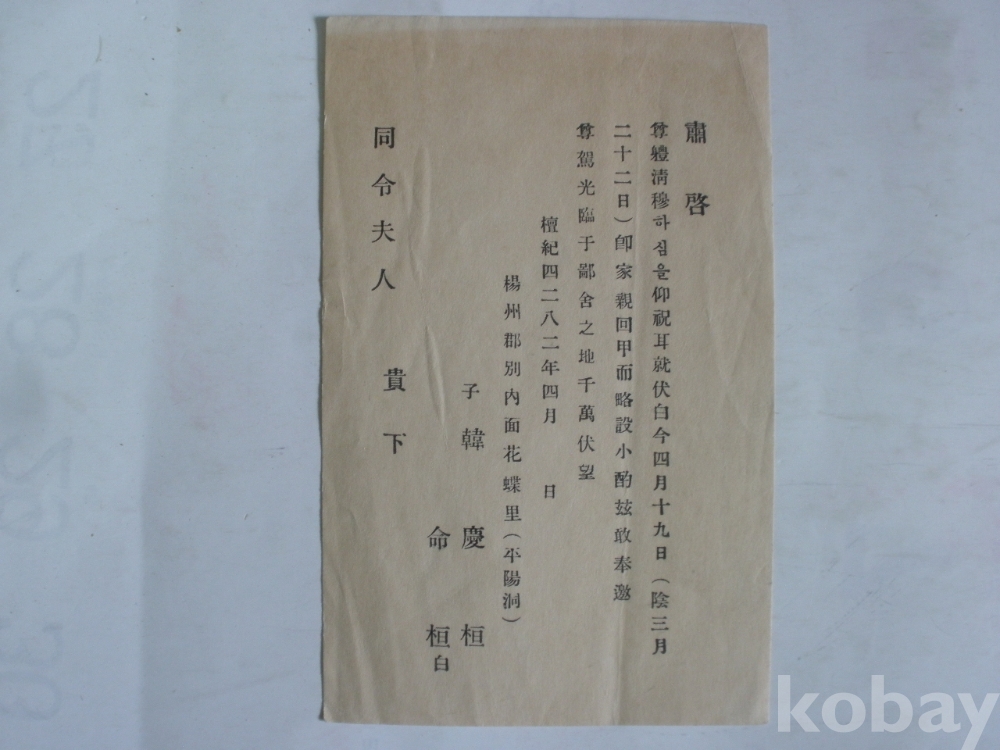 肅啓
尊軆淸穆하심을仰祝耳就伏白今四月十九日(陰三月
二十二日)卽家親回甲而略設小酌玆敢奉邀
尊駕光臨于鄙舍之地千萬伏望
檀紀四二八二年四月 日
楊州郡別內面花蝶里(平陽洞)
子韓慶桓
命桓白
同令夫人 貴下
kobay